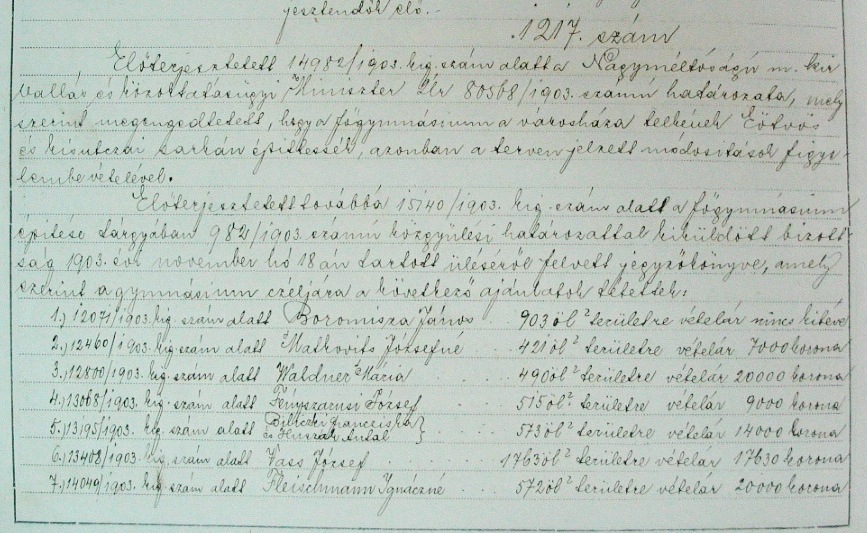 jesztendők elő.-
1217. szám
Előterjesztetett 14982/1903. kig. szám alatt a Nagyméltóságú m. kir
vallás és közoktatásügyi Miniszter Úr 80568/1903. számú határozata, mely
szerint megengedtetett, hogy a főgymnásium a városháza telkének Eötvös
és kisutczai sarkán építtessék, azonban a terven jelzett módosítások figye-
lembe vételével.
Előterjesztetett továbbá 15140/1903. kig. szám alatt a főgymnásium
építése tárgyában 982/1903. számú közgyűlési határozattal kiküldött bizott-
ság 1903. évi november hó 18 án tartott üléséről felvett jegyzőkönyve, amely
szerint a gymnásium czéljára a következő ajánlatok tétettek:
1.) 12071/1903. kig. szám alatt Boromisza János - 903 öl² területre vételár nincs kitéve
2.) 12460/1903. kig. szám alatt Matkovits Józsefné . . 421 öl² területre vételár 7000 korona
3.) 12800/1903. kig. szám alatt Waldner Mária . . . 490 öl² területre vételár 20000 korona
4.) 13068/1903. kig. szám alatt Fényszarusi József . . . 515 öl² területre vételár 9000 korona
5.) 13195/1903. kig. szám alatt Biliczki Francziska
és Huszár Antal } . . 573 öl² területre vételár 14000 korona
6.) 13408/1903. kig. szám alatt Vass József . . . 1763 öl² területre vételár 17630 korona
7.) 14049/1903. kig. szám alatt Fleischmann Ignáczné . . . 572 öl² területre vételár 20000 korona